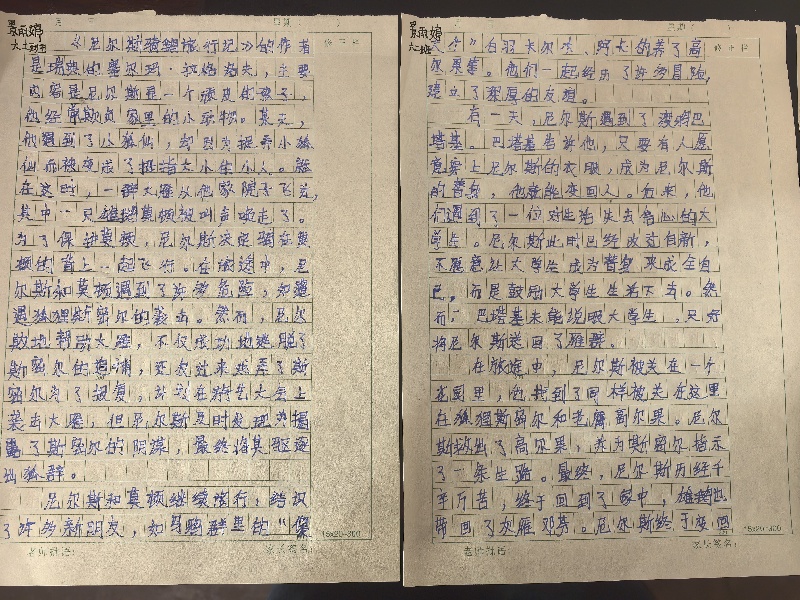 《尼尔斯骑鹅旅行记》的作者
是瑞典的塞尔玛·拉格洛夫,主要
内容是尼尔斯是一个调皮的孩子,
他经常欺负家里的小动物。某天,
他遇到了小狐仙,却因为捉弄小狐
仙而被变成了拇指大小的小人。就
在这时,一群大雁从他家院子飞过,
其中一只雄鹅莫顿被叫声吸走了。
为了保护莫顿,尼尔斯决定骑在莫
顿的背上一起飞行。在旅途中,尼
尔斯和莫顿遇到了许多危险,如遭
遇狐狸斯密尔的袭击。然而,尼尔
斯密尔为了报复,
袭击大雁,但尼尔斯及时发现并揭
露了斯密尔的阴谋,最终将其驱逐
出狐群。
尼尔斯和莫顿继续旅行,结识
了许多新朋友,如
尔果等。他们一起经历了许多冒险,
建立了深厚的友谊。
有一天,尼尔斯遇到了渡鸦巴
塔基。巴塔基告诉他,只要有人愿
意穿上尼尔斯的衣服,成为尼尔斯
的替身,他就能变回人。后来,他
们遇到了一位对生活失去信心的大
学生。尼尔斯此时已经改过自新,
不愿意让大学生成为替身来成全自
己,而是鼓励大学生生活下去。然
而,巴塔基未能说服大学生,只好
将尼尔斯送回了雁群。
在旅途中,尼尔斯被关在一个
花园里,他找到了同样被关在这里
在狐狸斯密尔和老鹰高尔果。尼尔
斯救出了高尔果,并为斯密尔指示
了一条生路。最终,尼尔斯历经千
辛万苦,终于回到了家中,雄鹅也
带回了灰雁邓芬。尼尔斯终于变回
15×20=300
15×20=300
老师评语:
家长签名:
老师评语:
家长签名: